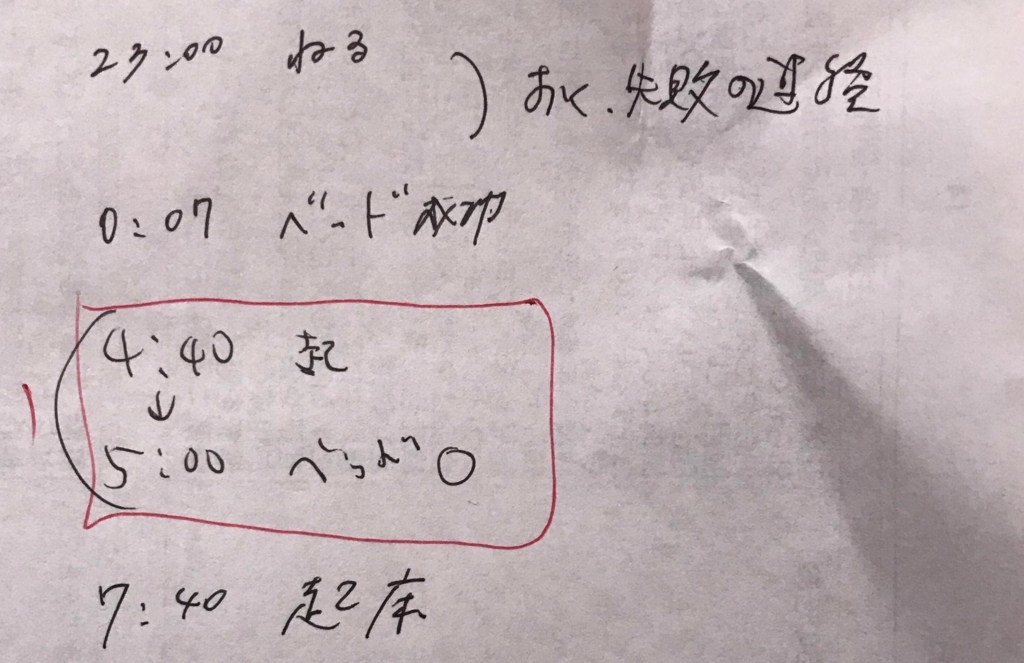 23:00 ねる
おく、失敗の過経
0:07 ベッド成功
4:40 起
↓
5:00 べっど○
7:40 起床